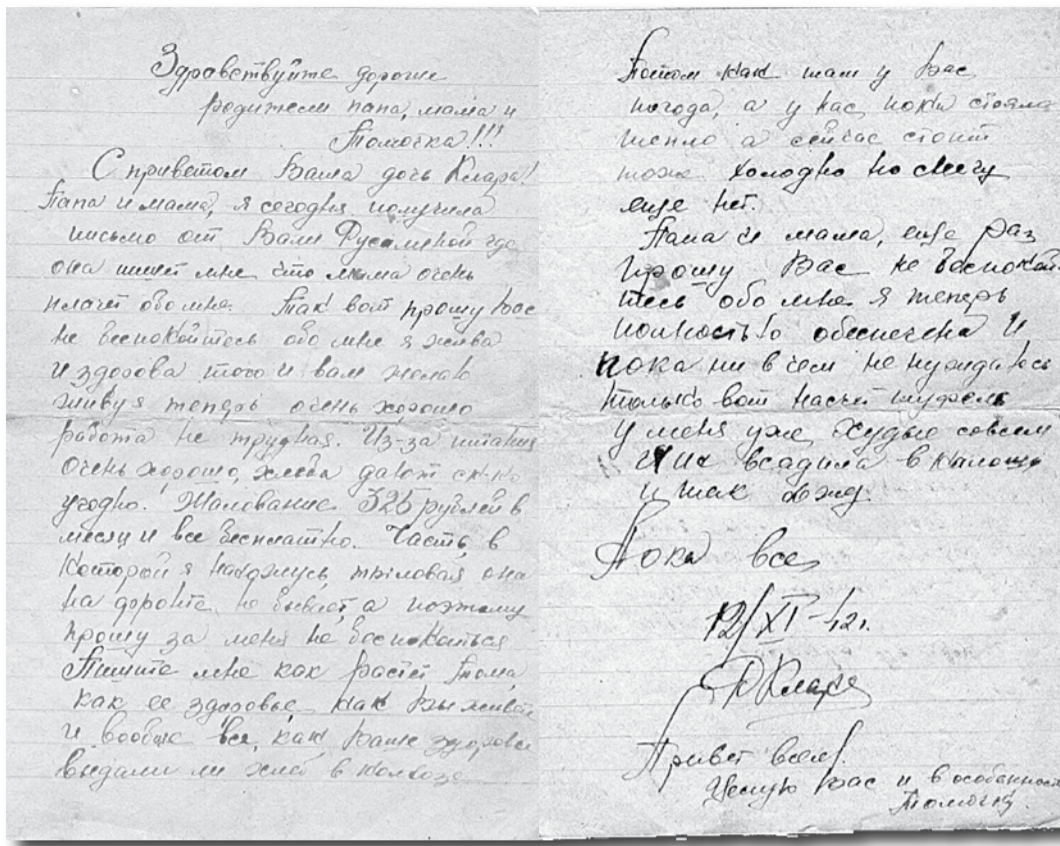 Здравствуйте дорогие
родители папа, мама и
Томочка!!!
С приветом Ваша дочь Клара!
Папа и мама, я сегодня получила
письмо от Вали где
она пишет мне что мама очень
плачет обо мне. Так вот прошу Вас
не беспокойтесь обо мне я жива
и здорова того и вам желаю
живу я теперь очень хорошо
работа не трудная. Из-за питания
очень хорошо, хлеба дают ск-ко
угодно. Жалование 325 рублей в
месяц и все бесплатно. Часть в
которой я нахожусь тыловая она
на фронте не бывает, а поэтому
прошу за меня не беспокоиться
Пишите мне как растет Тома,
как ее здоровье, как Вы живете
и вообще все, как Ваше здоровье
выдали ли хлеб в колхозе
Потом как там у Вас
погода, а у нас пока стояла
тепло а сейчас стоит
тоже холодно но снегу
еще нет.
Папа и мама, еще раз
прошу Вас не беспокой
тесь обо мне я теперь
полностью обеспечена и
пока ни в чем не нуждаюсь
только вот насчет туфель
у меня уже худые совсем
я их всадила в калоши
и так хожу.
Пока все
12/XI-42г.
Клара
Привет всем!
Целую Вас и в особенности
Томочку.